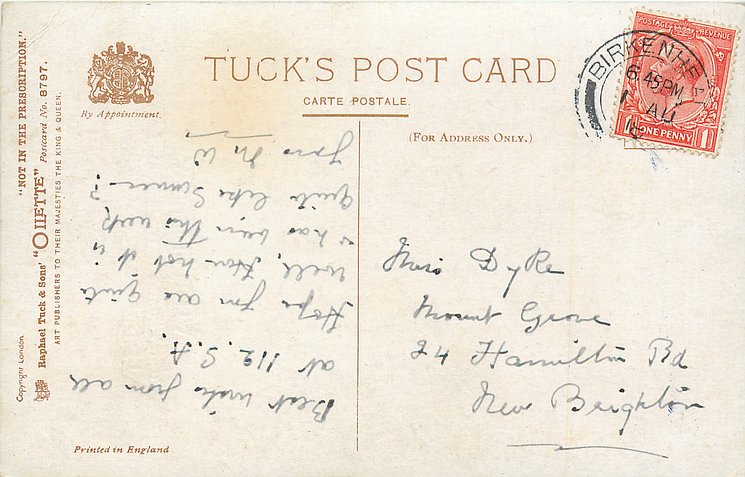 "NOT IN THE PRESCRIPTION."
Raphael Tuck & Sons' "OILETTE" Postcard No. 8797.
ART PUBLISHERS TO THEIR MAJESTIES THE KING & QUEEN.
Copyright London.
By Appointment.
TUCK'S POST CARD
CARTE POSTALE.
(FOR ADDRESS ONLY.)
POSTAGE REVENUE
1 ONE PENNY 1
BIRKENHEAD
6.45 PM
1 AU
18
Best wishes from all
at 112. S. A.
Hope you are quite
well, How hot it is
& has been this week
quite like Summer?
Yours M W
Miss Dyke
Mount Grove
24 Hamilton Rd
New Brighton
Printed in England